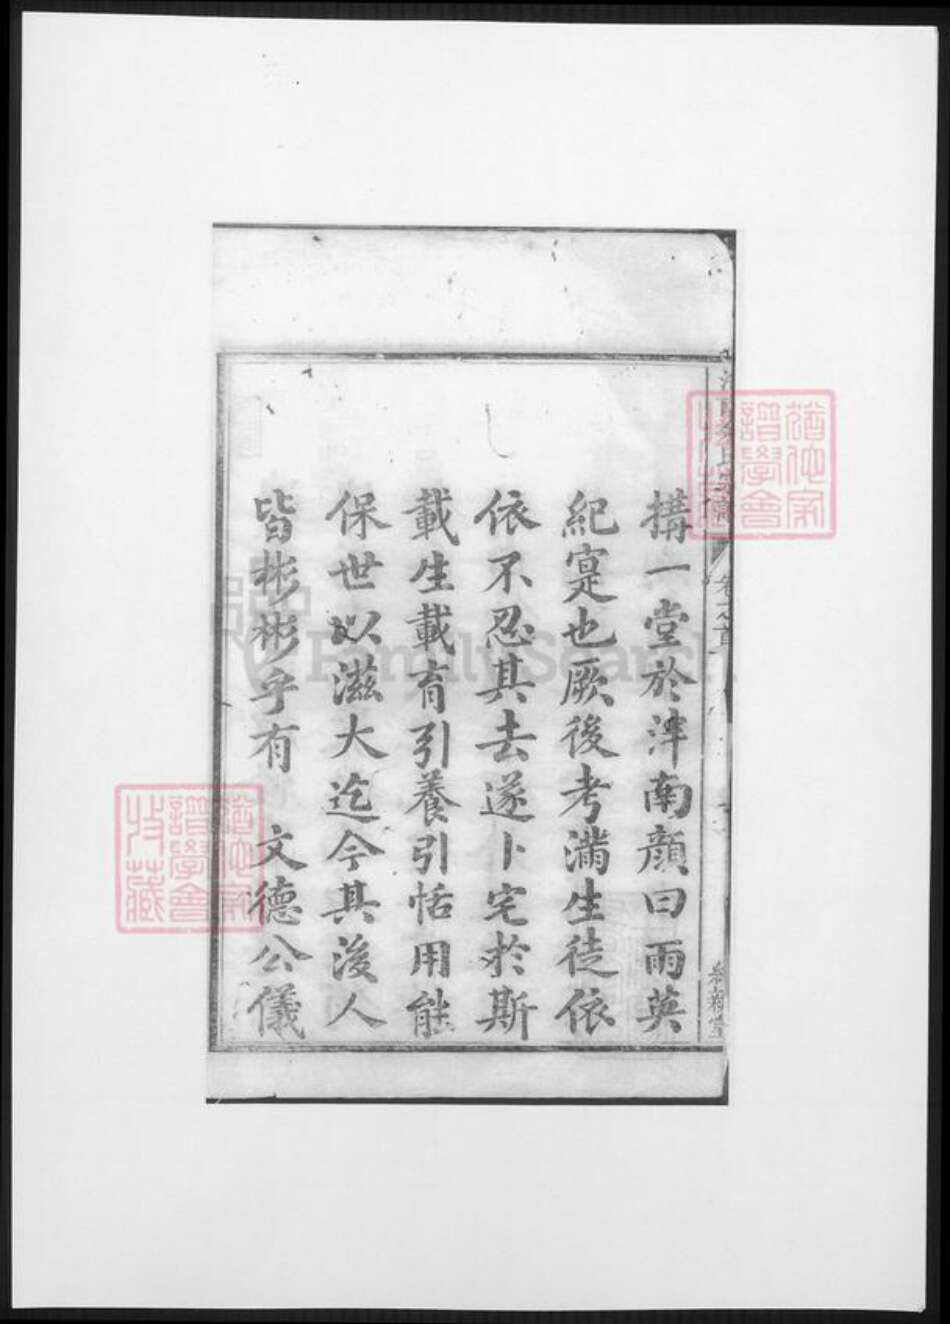 構一堂於泮南顔曰雨英
紀寔也厥後考滿生徒依
依不忍其去遂卜宅於斯
載生載育引養引恬用能
保世以滋大迄今其後人
皆彬彬乎有 文德公儀
卷之首
譜學會
收藏
FamilySearch